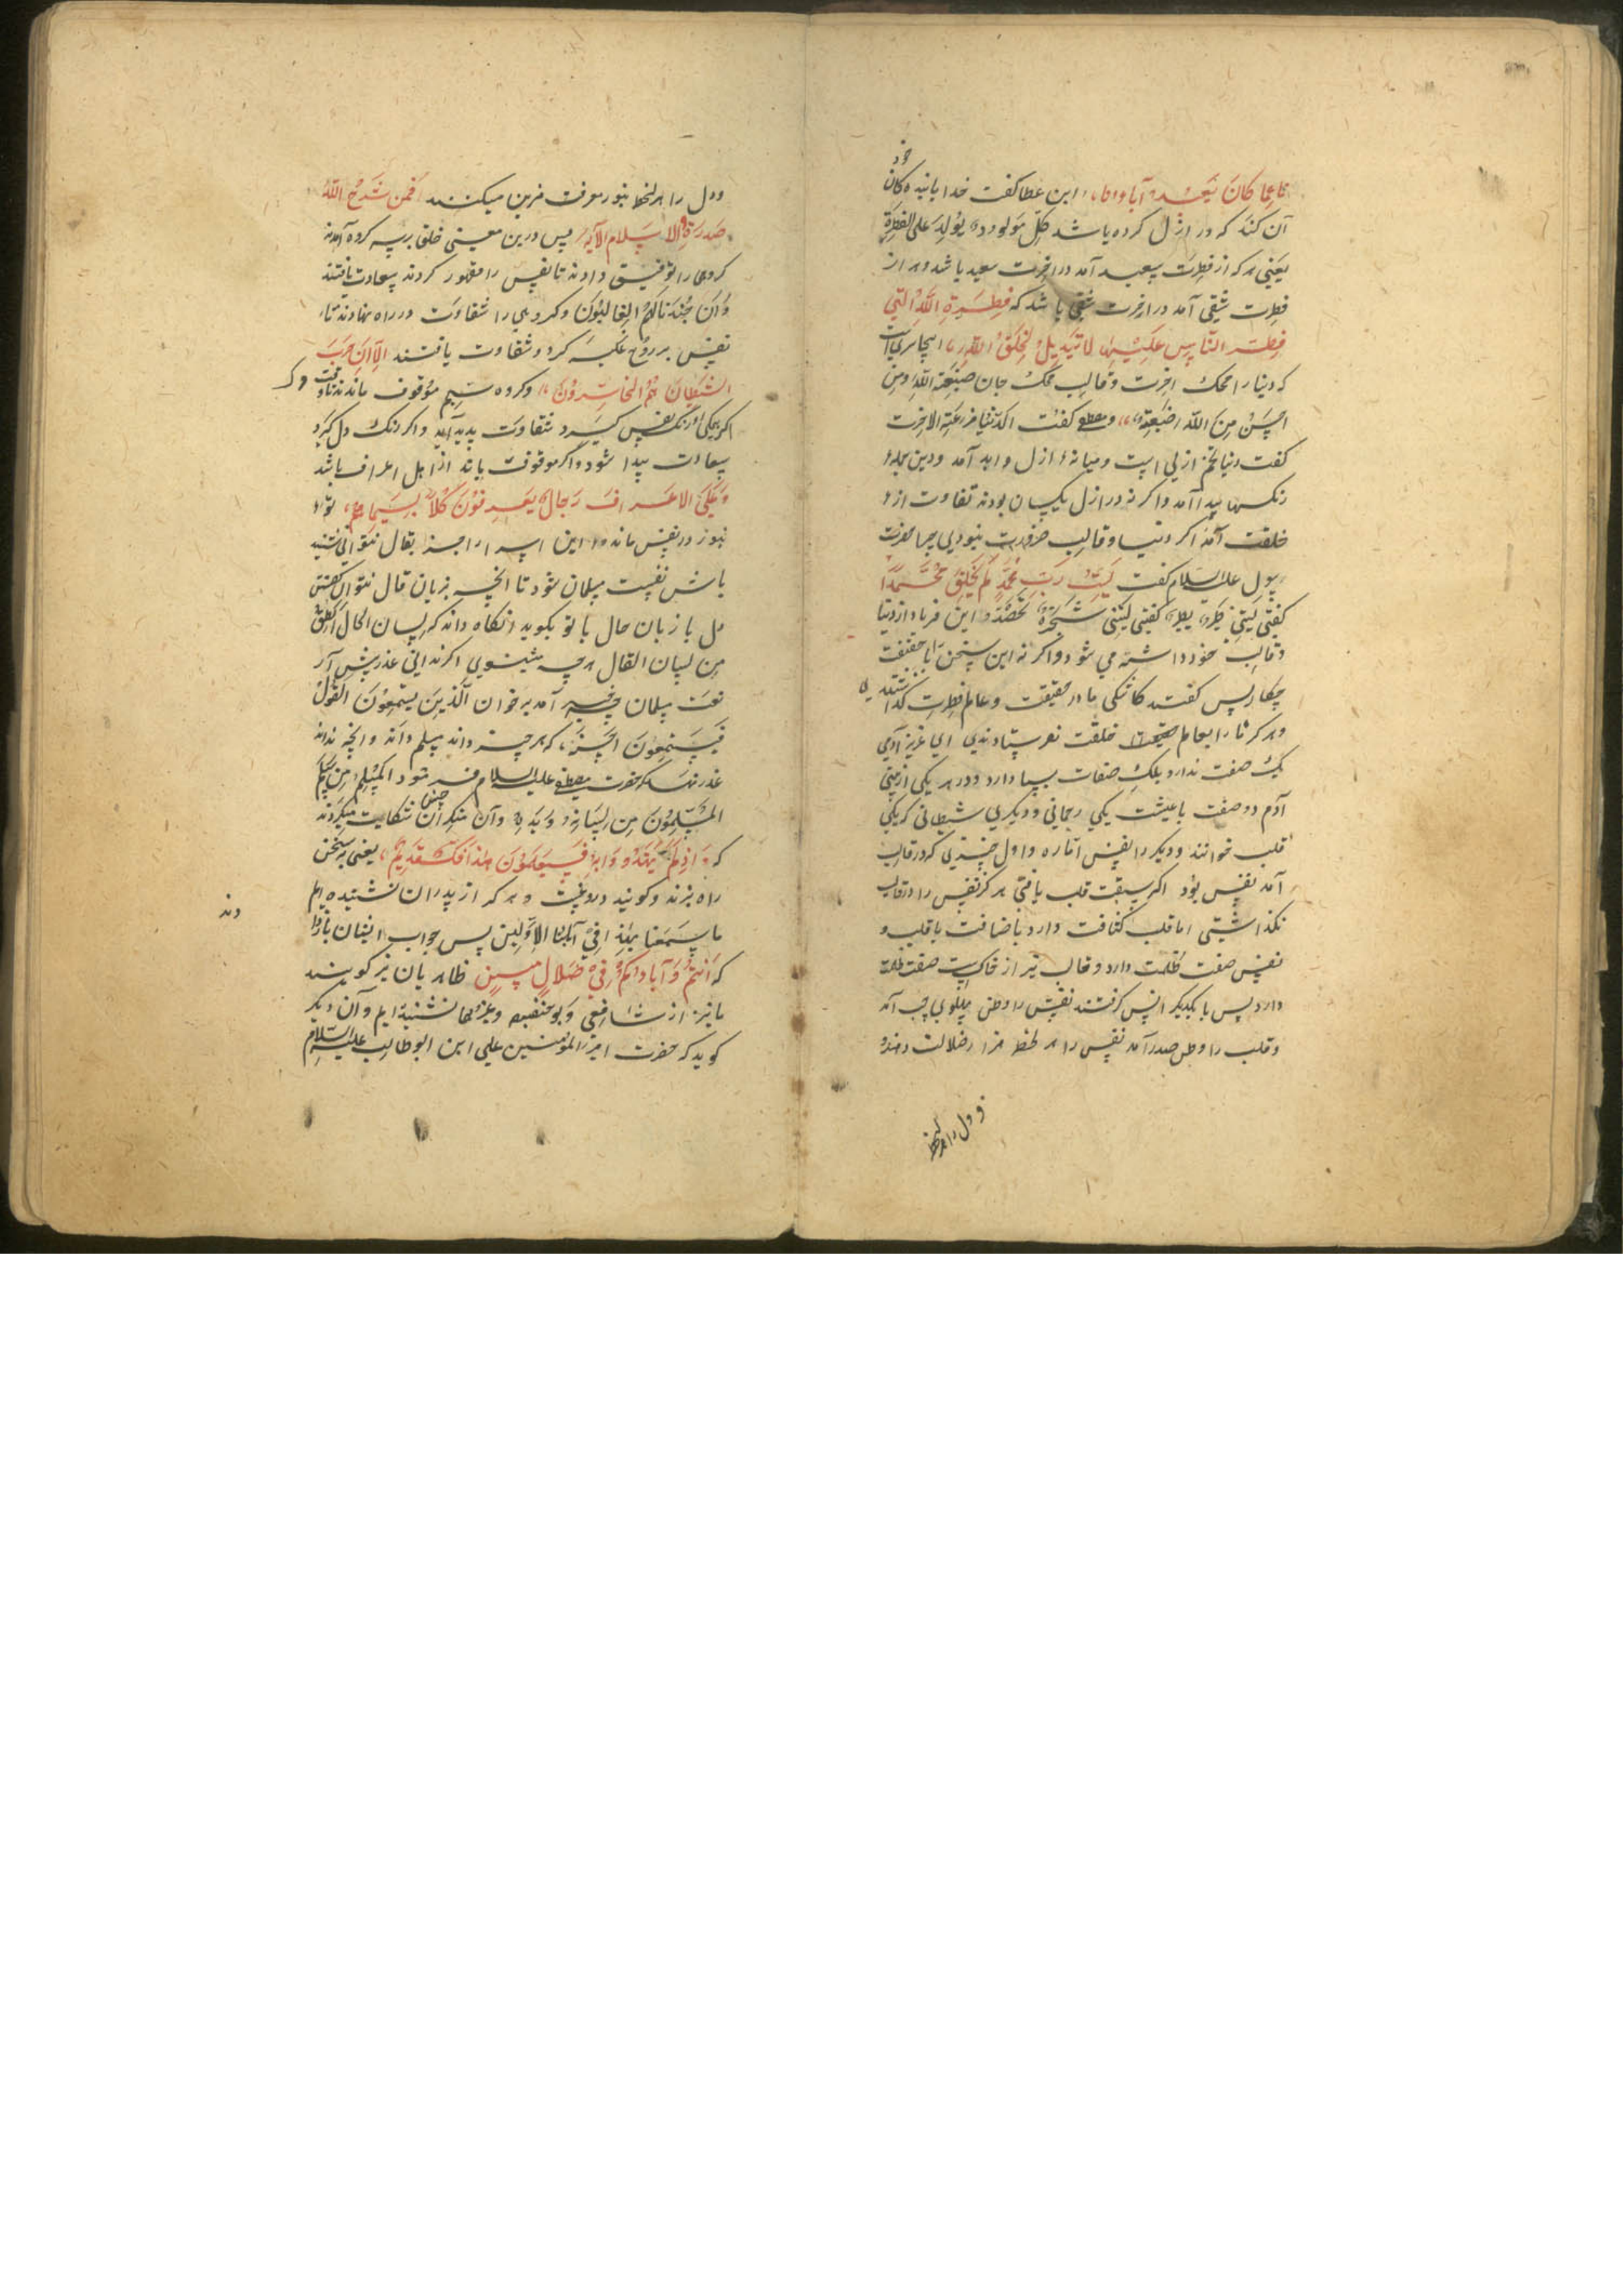 خود
ما کان یعبد آباؤنا، ابن عطا کفت خدا با بنده کان
آن کند که در ازل کرده باشد کل مولود یولد علی الفطرة
یعنی هر که از فطرت سعید آمد در اخرت سعید باشد و هر از
فطرت شقی آمد در اخرت شقی باشد که فطرة الله التی
فطر الناس علیها لا تبدیل لخلق الله، اینجا سریست
که دینا را محک اخرت و قالب محک جان صبغة الله ومن
احسن من الله صبغة، ومصطفی کفت الدنیا مزرعة الاخرت
کفت دنیا تخم ازلی است و میانه ازل و ابد آمد و دین جمله
رنکها پیدا آمد واکر نه در ازل یکسان بودند تفاوت از
خلقت آمد اکر دنیا و قالب ضرورت نبودی چرا حضرت
رسول علیه السلام کفت لیت رب محمد لم یخلق محمدا
کفتی لیتنی طیر یطیر کفتی لیتنی شجرة تعضد این فریاد از دنیا
و قالب خود داشته می شود واکر نه این سخن با حقیقت
چکار پس کفتند کاشکی ما در حقیقت و عالم فطرت کذاشتندی
و هرکز ما را بعالم خلقت نفرستادندی ای عزیز آدمی
یک صفت ندارد بلک صفات بسیار دارد و در هر یکی از بنی
آدم دو صفت باعیثت یکی رحمانی و دیکری شیطانی که یکی
قلب خوانند و دیکر را نفس اماره و اول چیزی که در قالب
آمد نفس بود اکر سبقت قلب یافتی هرکز نفس را در قالب
نکذاشتی اما قلب کثافت دارد باضافت با قلب و
نفس صفت ظلمت دارد و قالب نیز از خاکست صفت ظلمت
دارد پس با یکدیکر انس کرفتند نفس را وطن پهلوی چپ آمد
و قلب را وطن صدر آمد نفس را هر لحظه مزا ر ضلالت دهند
و دل را هر لحظه
ودل را هر لحظه بنور معرفت مزین میکنند افمن شرح الله
صدره للاسلام الآیة پس درین معنی خلق بر سه کروه آمدند
کروهی را توفیق دادند تا نفس را مقهور کردند سعادت یافتند
وان جندنا لهم الغالبون وکروهی را شقاوت در راه نهادند تا
نفس بر روح غلبه کرد و شقاوت یافتند الا ان حزب
الشیطان هم الخاسرون، وکروه سیم موقوف ماندند تا وقت مرک
اکر یکی رنک نفس کیرد شقاوت پدید آید واکر رنک دل کیرد
سعادت پیدا شود واکر موقوف باند از اهل اعراف باشد
وعلی الاعراف رجال یعرفون کلا بسیماهم، تو
هنوز در نفس مانده این اسرار را جز بقال نتوانی شنید
باش نفست مسلمان شود تا انچه بزبان قال نتوان کفتن
دل با زبان حال با تو بکوید انکاه داند که لسان الحال انطق
من لسان القال هرچه میشنوی اکر ندانی عذر پیش آر
نعت مسلمان چه آمد بر خوان الذین یستمعون القول
فیتبعون احسنه، که هر چه داند مسلم داند وانچه نداند
عذر نهد که حضرت مصطفی علیه السلام فرمود المسلم من سلم
المسلمون من لسانه و یده وآن منکران چنین شکایت میکردند
که واذ لم یهتدوا به فسیقولون هذا افک قدیم، یعنی به سخن
راه نبرند وکویند دروغست و هرکه از پدران نشنیده ایم
ما سمعنا بهذا فی آبائنا الاولین پس جواب ایشان باز دا
دند
که انتم وآباؤکم فی ضلال مبین ظاهریان نیز کویند
ما نیز از شافعی و بوحنیفه و غیرهما نشنیده ایم وآن دیکر
کوید که حضرت امیر المؤمنین علی ابن ابو طالب علیه السلام